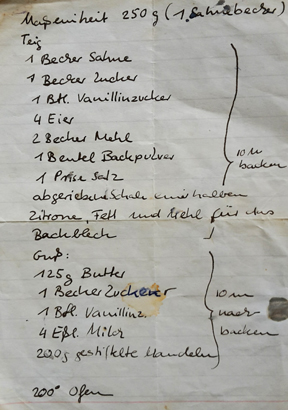 Maßeinheit 250 g (1 Sahnebecher)
Teig
1 Becher Sahne
1 Becher Zucker
1 Btl. Vanillinzucker
4 Eier
2 Becher Mehl
1 Beutel Backpulver
1 Prise Salz
10 m backen
abgeriebene Schale einer halben
Zitrone, Fett und Mehl für das
Backblech
Guß:
125 g Butter
1 Becher Zucker
1 Btl. Vanillinz.
4 Eßl. Milch
200 g gestiftelte Mandeln
10 m
nach
backen
200° Ofen